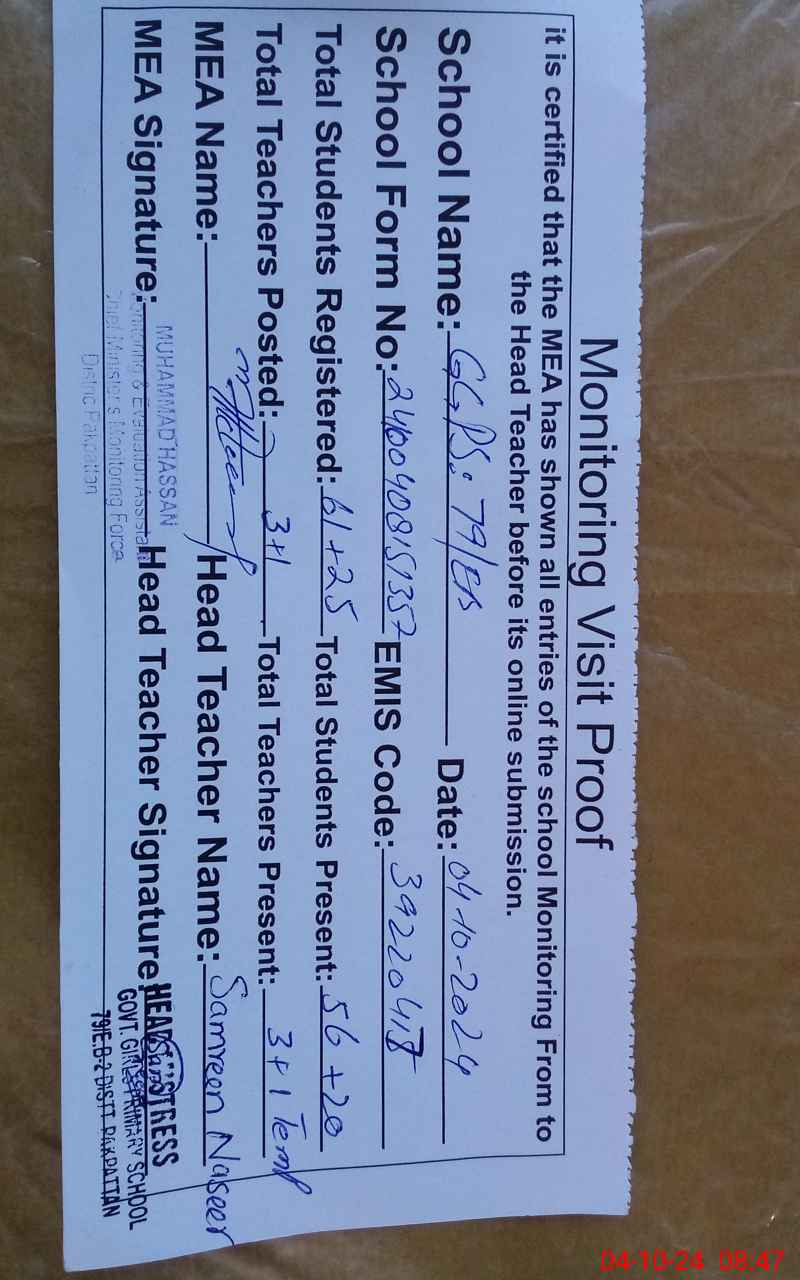 Monitoring Visit Proof
it is certified that the MEA has shown all entries of the school Monitoring From to
the Head Teacher before its online submission.
School Name: GGPS: 79/EB Date: 04-10-2024
School Form No: EMIS Code:
Total Students Registered: 61+25 Total Students Present: 56+20
Total Teachers Posted: 3+1 Total Teachers Present: 3+1 Temp
MEA Name: Head Teacher Name: Samreen Naseer
MEA Signature: Head Teacher Signature
MUHAMMAD HASSAN
Monitoring & Evaluation Assistant
Chief Minister's Monitoring Force
District Pakpattan
HEADMISTRESS
GOVT. GIRLS PRIMARY SCHOOL
79/E.B-2 DISTT. PAKPATTAN
04-10-24 08:47